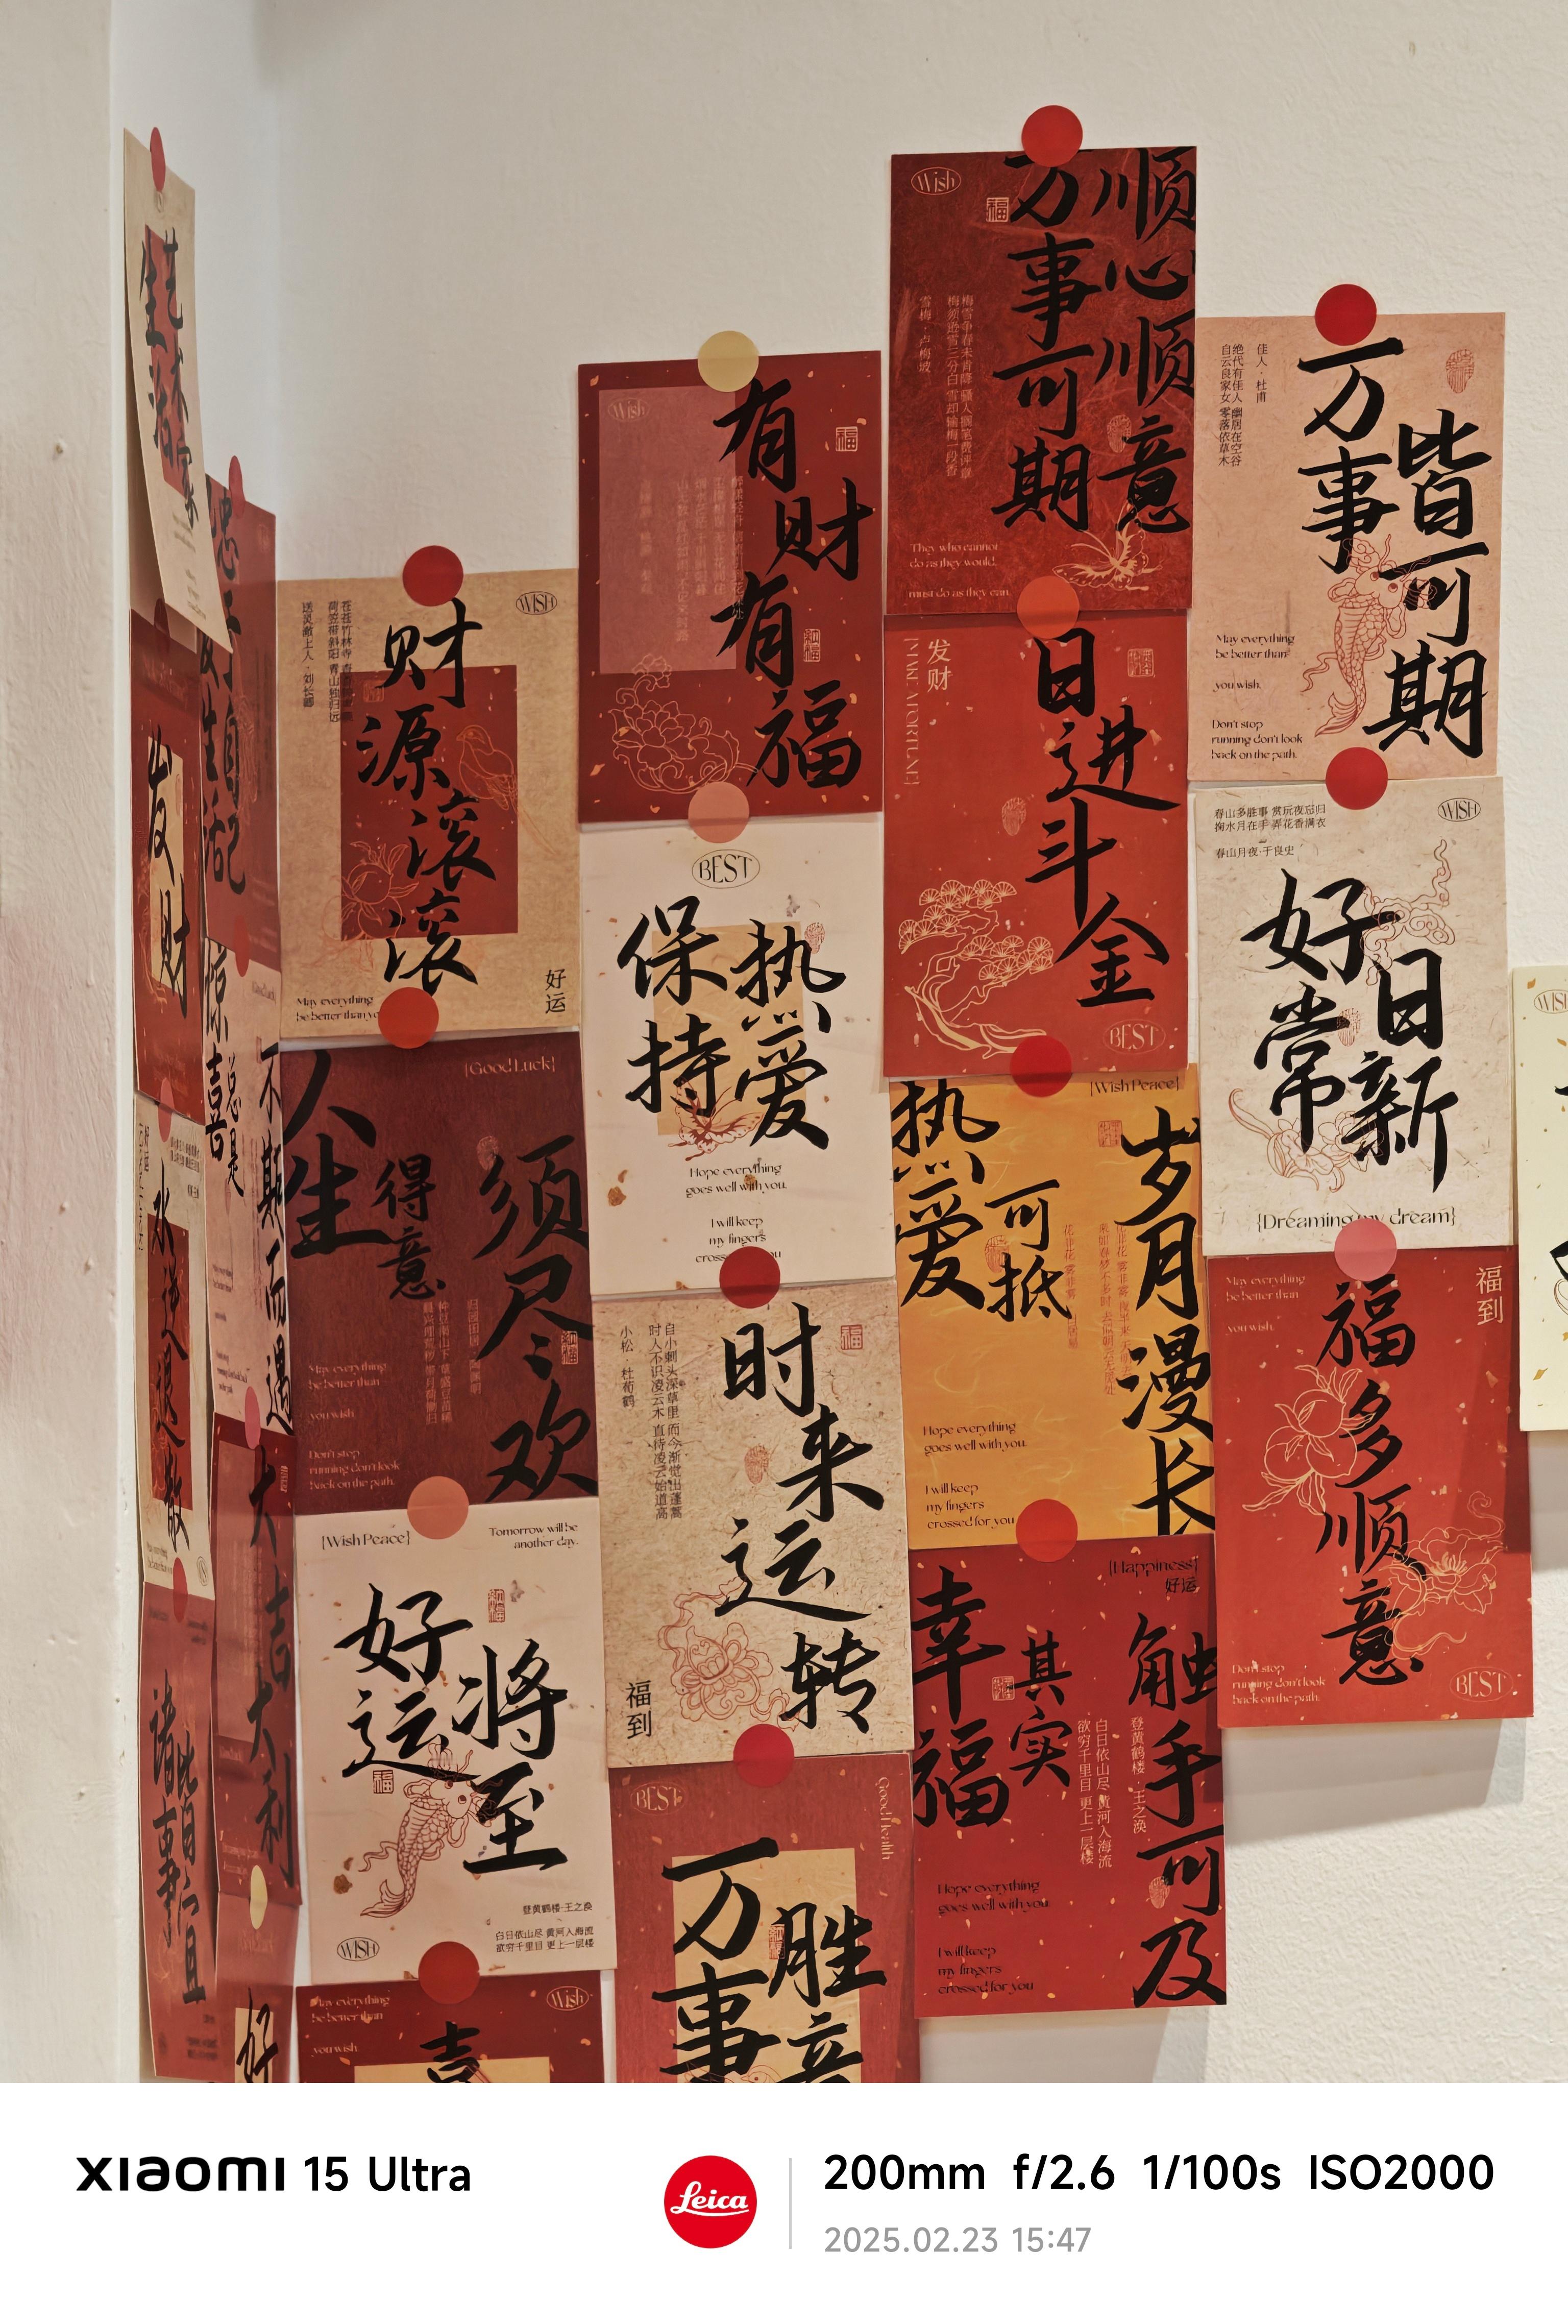 生活
艺术家
发财
水逆退散
诸事
皆宜
惊喜
总是
不期而遇
大吉大利
好
WISH
苍苍竹林寺 杳杳钟声晚
荷笠带斜阳 青山独归远
送灵澈上人·刘长卿
财源滚滚
好运
May everything
be better than yo
[Good Luck]
人生
得意
须尽欢
May everything
be better than
you wish.
Don't stop
running don't look
back on the path.
[Wish Peace]
Tomorrow will be
another day.
好运
将至
福
登黄鹤楼·王之涣
白日依山尽 黄河入海流
欲穷千里目 更上一层楼
WISH
May everything
be better than
you wish.
Wish
喜
Wish
福
有财
有福
BEST
保持
热爱
Hope everything
goes well with you.
I will keep
my fingers
crossed
you
自小刺头深草里 而今渐觉出蓬蒿
时人不识凌云木 直待凌云始道高
小松·杜荀鹤
时来
运转
福到
BEST
Good health
万事
胜意
Wish
福
顺心顺意
万事可期
梅雪争春未肯降 骚人搁笔费评章
梅须逊雪三分白 雪却输梅一段香
雪梅·卢梅坡
They who cannot
do as they would,
must do as they can.
发财
[MAKE A FORTUNE]
日进斗金
BEST
[Wish Peace]
热爱
可抵
岁月漫长
Hope everything
goes well with you.
I will keep
my fingers
crossed for you
[Happiness]
好运
幸福
其实
触手可及
登黄鹤楼·王之涣
白日依山尽 黄河入海流
欲穷千里目 更上一层楼
Hope everything
goes well with you.
I will keep
my fingers
crossed for you
佳人·杜甫
绝代有佳人 幽居在空谷
自云良家女 零落依草木
万事
皆可期
May everything
be better than
you wish.
Don't stop
running don't look
back on the path.
春山多胜事 赏玩夜忘归
掬水月在手 弄花香满衣
春山月夜·于良史
WISH
好日
常新
[Dreaming my dream]
May everything
be better than
you wish.
福到
福多顺意
Don't stop
running don't look
back on the path.
BEST
XIAOMI 15 Ultra
Leica
200mm f/2.6 1/100s ISO2000
2025.02.23 15:47